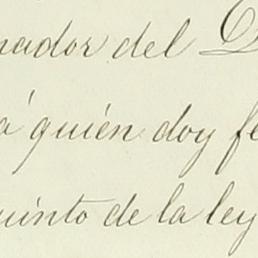 nador del
á quién doy fe
quinto de la ley